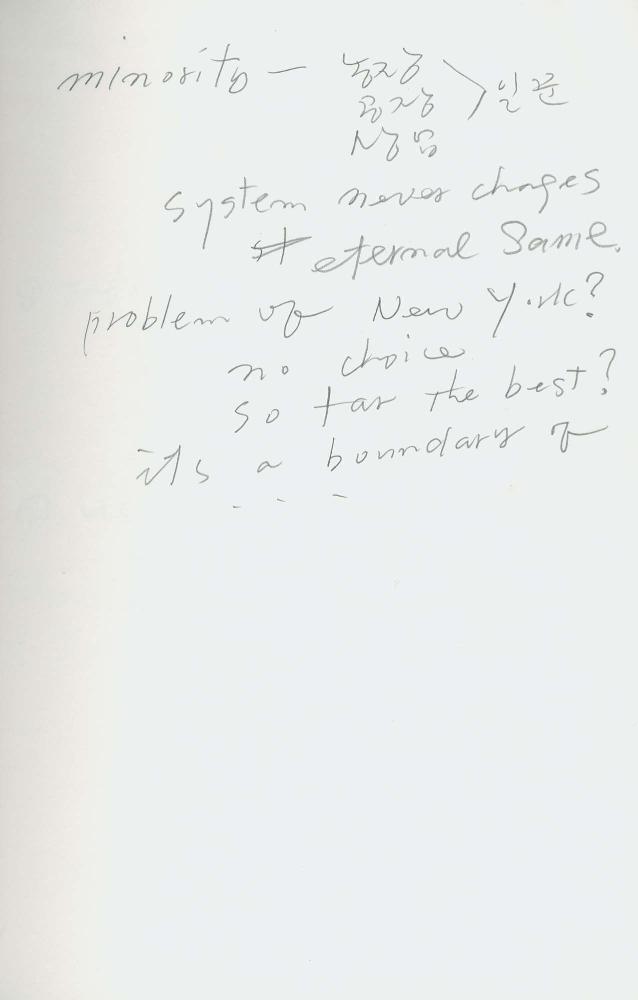 minority — 농장 > 일꾼
공장
상업
system never chages
eternal Same.
problem of New York?
no choice
so far the best?
its a boundary of
- - -